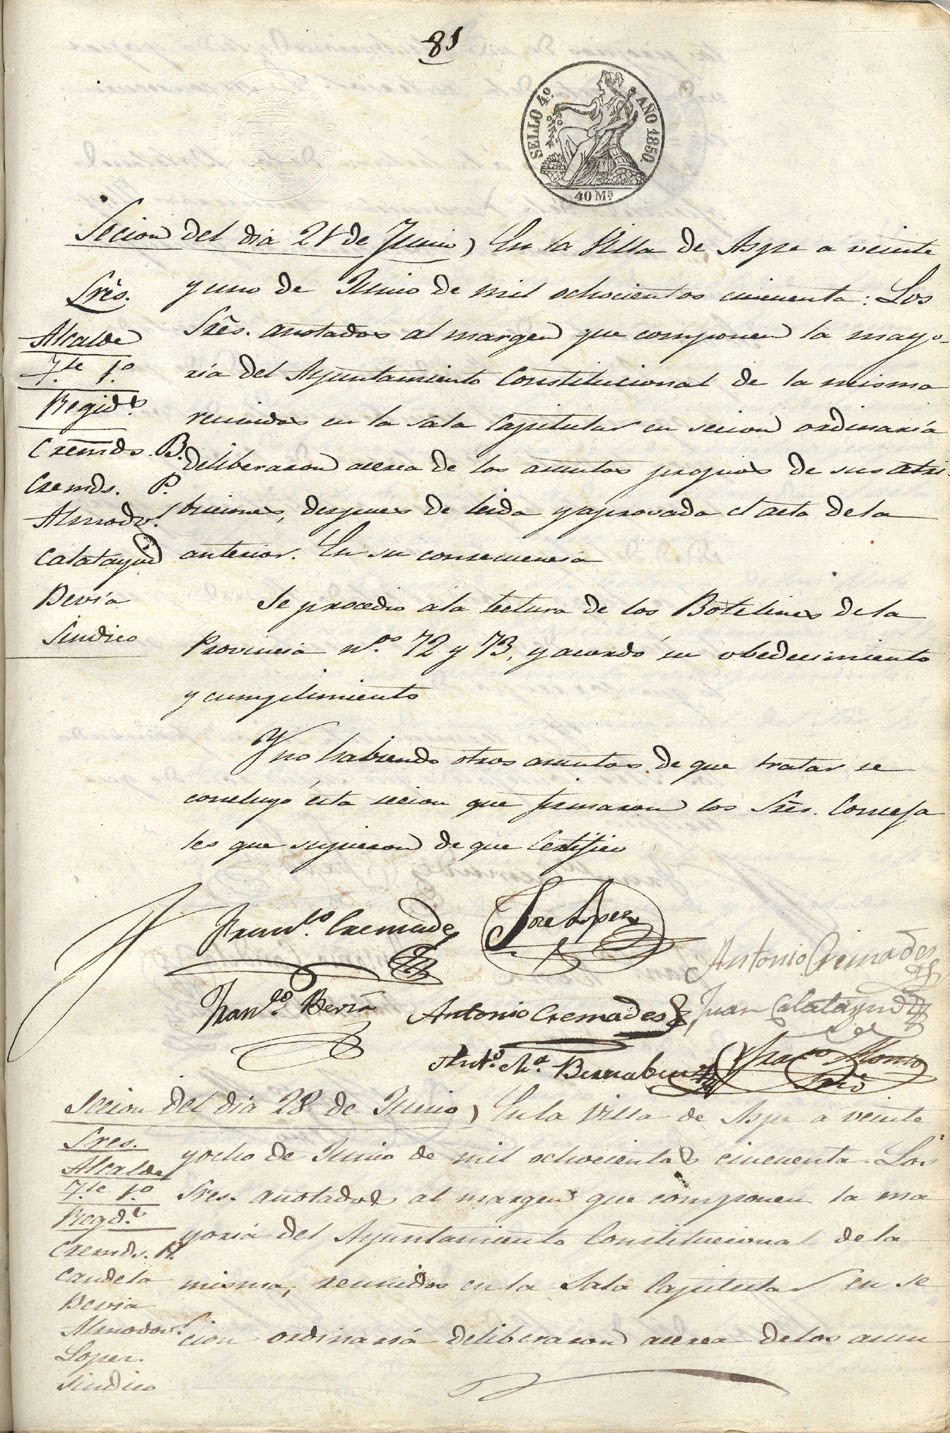 81
SELLO 4º. AÑO 1850.
40 Ms
Secion del dia 21 de Junio) En la Villa de Aspe a veinte
y uno de Junio de mil ochocientos cincuenta: Los
Sres. anotados al margen que componen la mayo-
ria del Ayuntamiento Constitucional de la misma
reunidos en la sala Capitular en secion ordinaria
deliberaron acerca de los asuntos propios de sus atri-
buciones, despues de leida y aprovada el acta de la
anterior. En su consecuencia
Sres.
Alcalde
Tte. 1º
Regids.
Cremds. B.
Cremds. P.
Almodor.
Calatayud
Bevia
Sindico
Se procedio a la lectura de los Boletines de la
Provincia nos. 72 y 73, y acordó su obedecimiento
y cumplimiento
Y no habiendo otros asuntos de que tratar se
concluyó esta secion que firmaron los Sres. Conceja
les que supieron de que Certifico
Franco. Cremades
Jose Lopez
Antonio Cremades
Franco. Bevia
Antonio Cremades
Juan Calatayud
Anto. Ma. Bernabeu
Franco Alonso
Srio
Secion del dia 28 de Junio) En la Villa de Aspe a veinte
y ocho de Junio de mil ochocientos cincuenta. Los
Sres. anotados al margen que componen la ma
yoria del Ayuntamiento Constitucional de la
misma, reunidos en la Sala Capitular en se
cion ordinaria deliberaron acerca de los asun
Sres.
Alcalde
Tte. 1º
Regds.
Cremds. P.
Candela
Bevia
Almodor.
Lopez.
Sindico